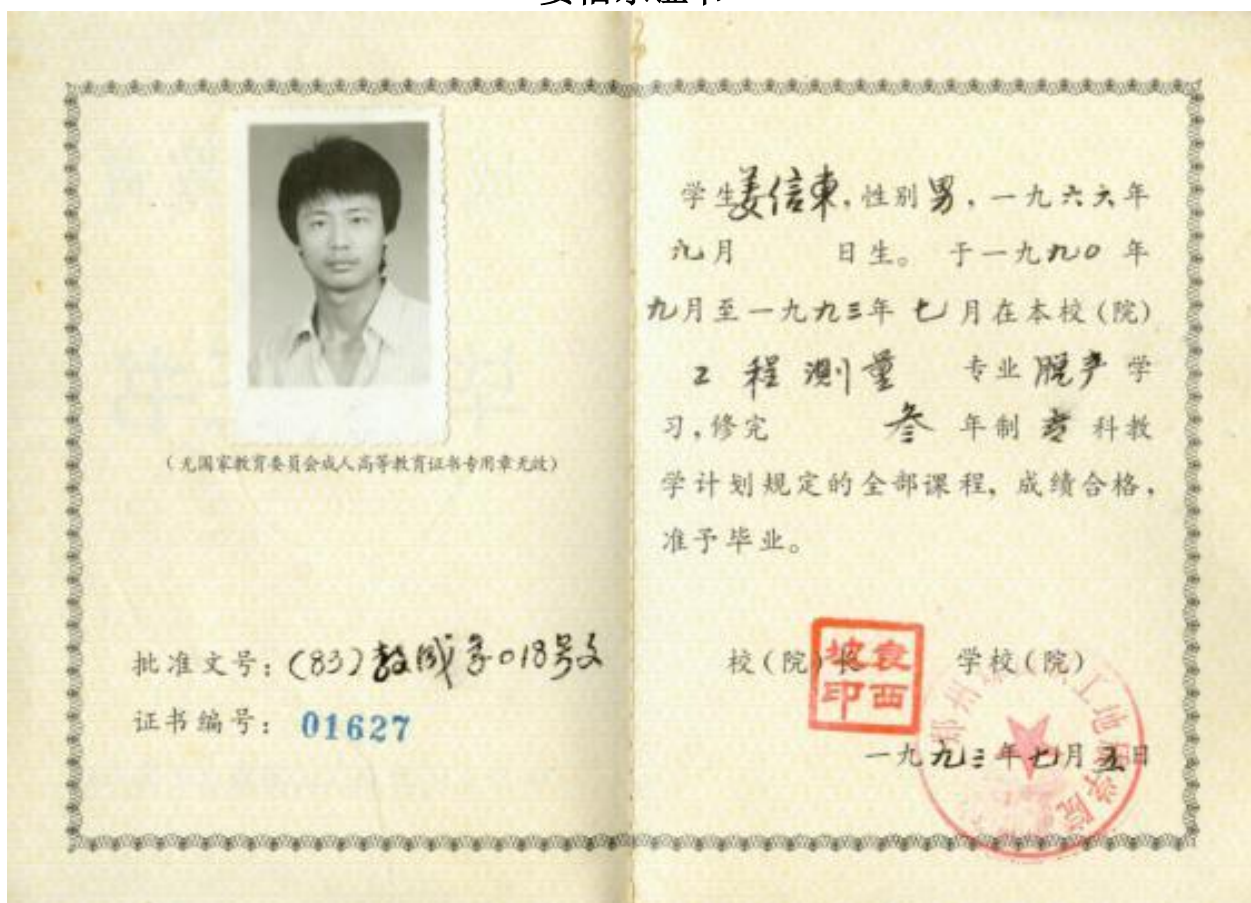 (无国家教育委员会成人高等教育证书专用章无效)
批准文号: (83)教成字018号文
证书编号: 01627
学生姜信東,性别男,一九六六年
九月 日生。于一九九0年
九月至一九九三年七月在本校(院)
工程测量 专业脱产学
习,修完 叁年制专科教
学计划规定的全部课程,成绩合格,
准予毕业。
校(院)长 学校(院)
袁西坡印
一九九三年七月五日
郑州 工地 学院